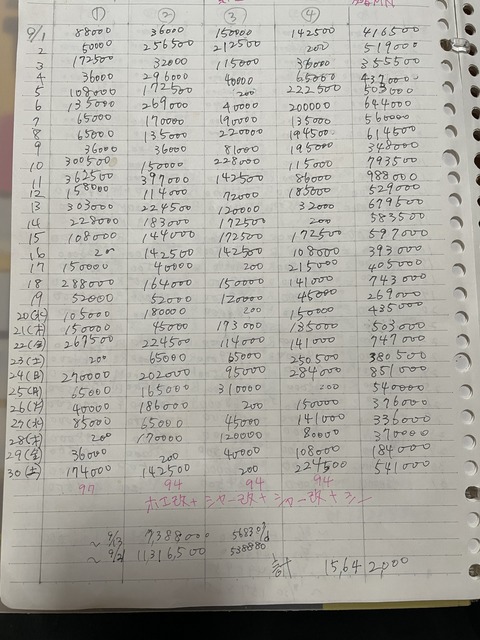 ① ② ③ ④
9/1 88000 36000 150000 142500 416500
2 50000 256500 212500 200 519000
3 172500 32000 115000 36000 355500
4 36000 296000 40000 65000 437000
5 108000 172500 200 222500 503000
6 135000 269000 40000 200000 644000
7 65000 170000 190000 135000 560000
8 65000 135000 220000 194500 614500
9 36000 36000 81000 195000 348000
10 300500 150000 228000 115000 793500
11 362500 397000 142500 86000 988000
12 158000 114000 72000 185000 529000
13 303000 224500 120000 32000 679500
14 228000 183000 172500 200 583500
15 108000 144000 172500 172500 597000
16 200 142500 142500 108000 393000
17 150000 40000 200 215000 405000
18 288000 164000 150000 141000 743000
19 52000 52000 120000 45000 269000
20(水) 105000 180000 200 150000 435000
21(木) 150000 45000 173000 135000 503000
22(金) 267500 224500 114000 141000 747000
23(土) 200 65000 65000 250500 380500
24(日) 270000 202000 95000 284000 851000
25(月) 65000 165000 310000 200 540000
26(火) 40000 186000 200 150000 376000
27(水) 85000 65000 45000 141000 336000
28(木) 200 170000 120000 80000 370000
29(金) 36000 200 40000 108000 184000
30(土) 174000 142500 200 224500 541000
97 94 94 94
ホエ改+シャー改+シャー改+シー
~9/13 7,388000 56830%
~9/21 11,316,500 538880
計 15,642,000